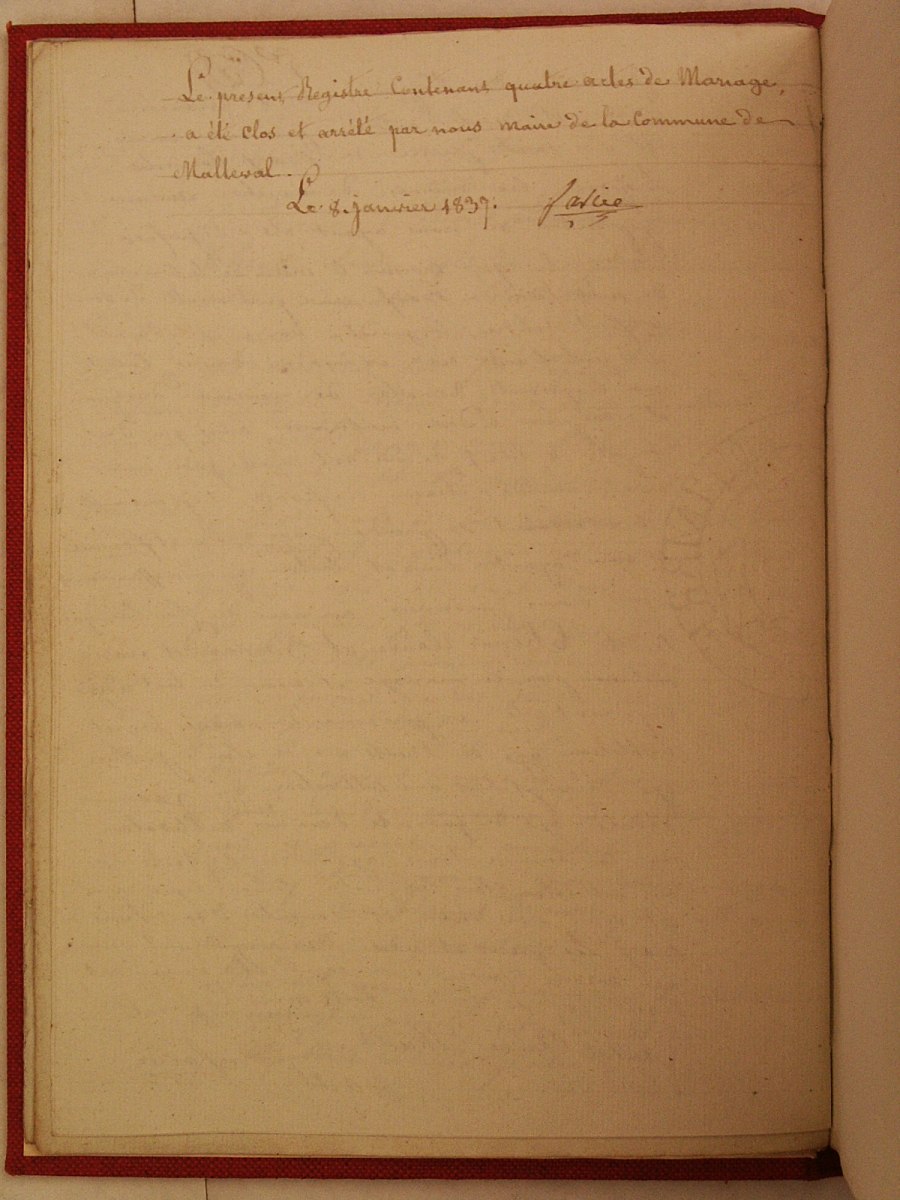 Le présent Registre Contenant quatre actes de Mariage,
a été clos et arrêté par nous Maire de la Commune de
Malleval.
Le 8. janvier 1837.